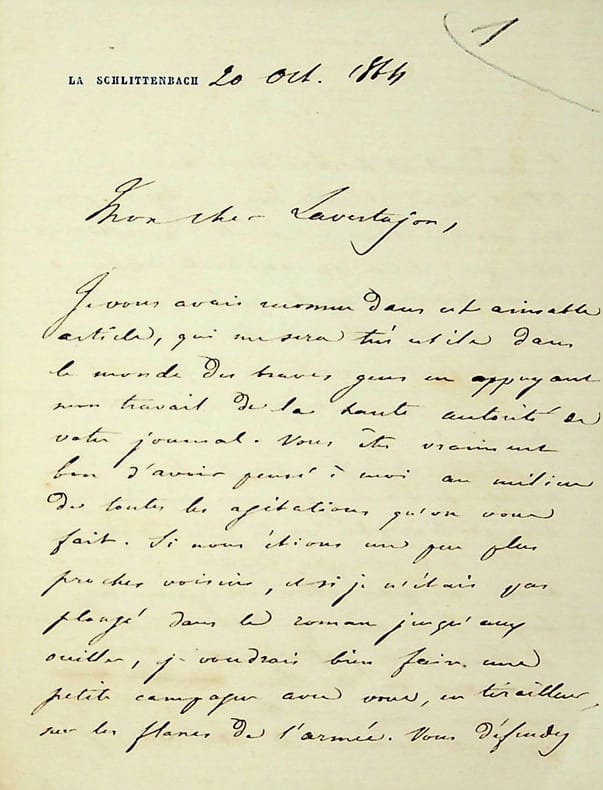 1
LA SCHLITTENBACH 20 Oct. 1864
Mon cher Lavertujon,
Je vous avais reconnu dans cet aimable
article, qui me sera très utile dans
le monde des braves gens en appuyant
mon travail de la haute autorité de
votre journal. Vous êtes vraiment
bon d'avoir pensé à moi au milieu
de toutes les agitations qu'on vous
fait. Si nous étions un peu plus
proches voisins, et si je n'étais pas
plongé dans le roman jusqu'aux
oreilles, je voudrais bien faire une
petite campagne avec vous, en tirailleur,
sur les flancs de l'armée. Vous défendez